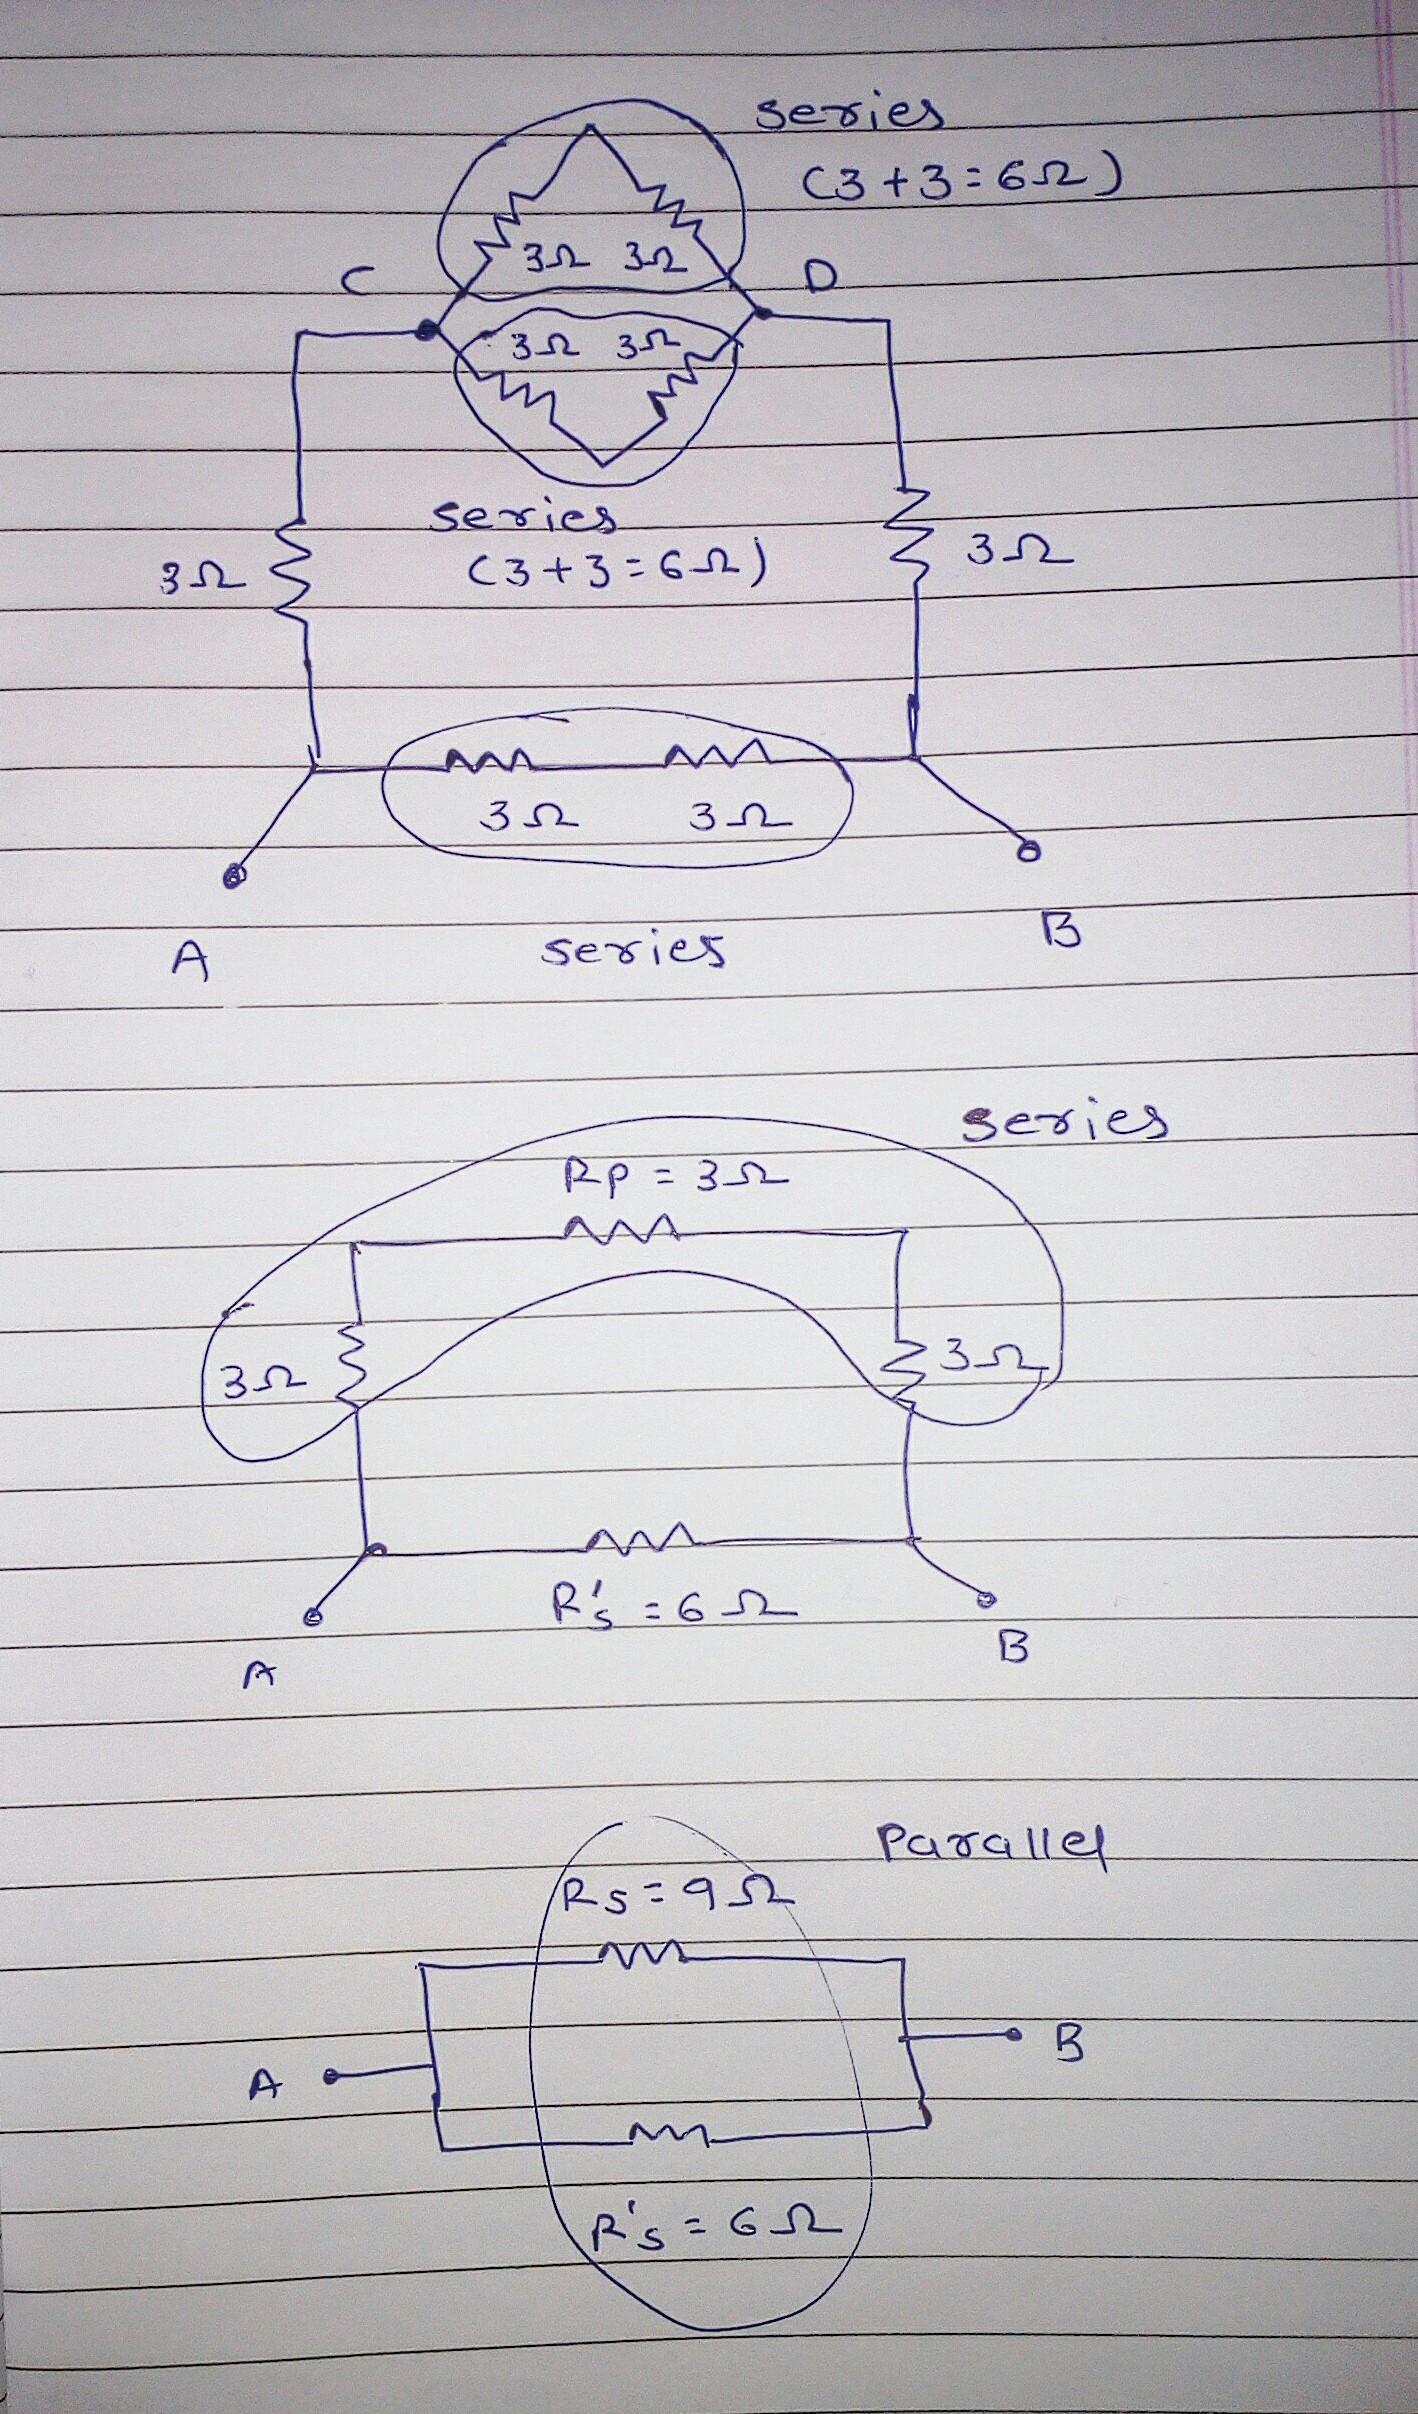 series
(3+3=6Ω)
3Ω 3Ω
C D
3Ω 3Ω
series
(3+3=6Ω)
3Ω 3Ω
3Ω 3Ω
A B
series
series
Rp = 3Ω
3Ω 3Ω
R's = 6Ω
A B
Parallel
Rs = 9Ω
A B
R's = 6Ω